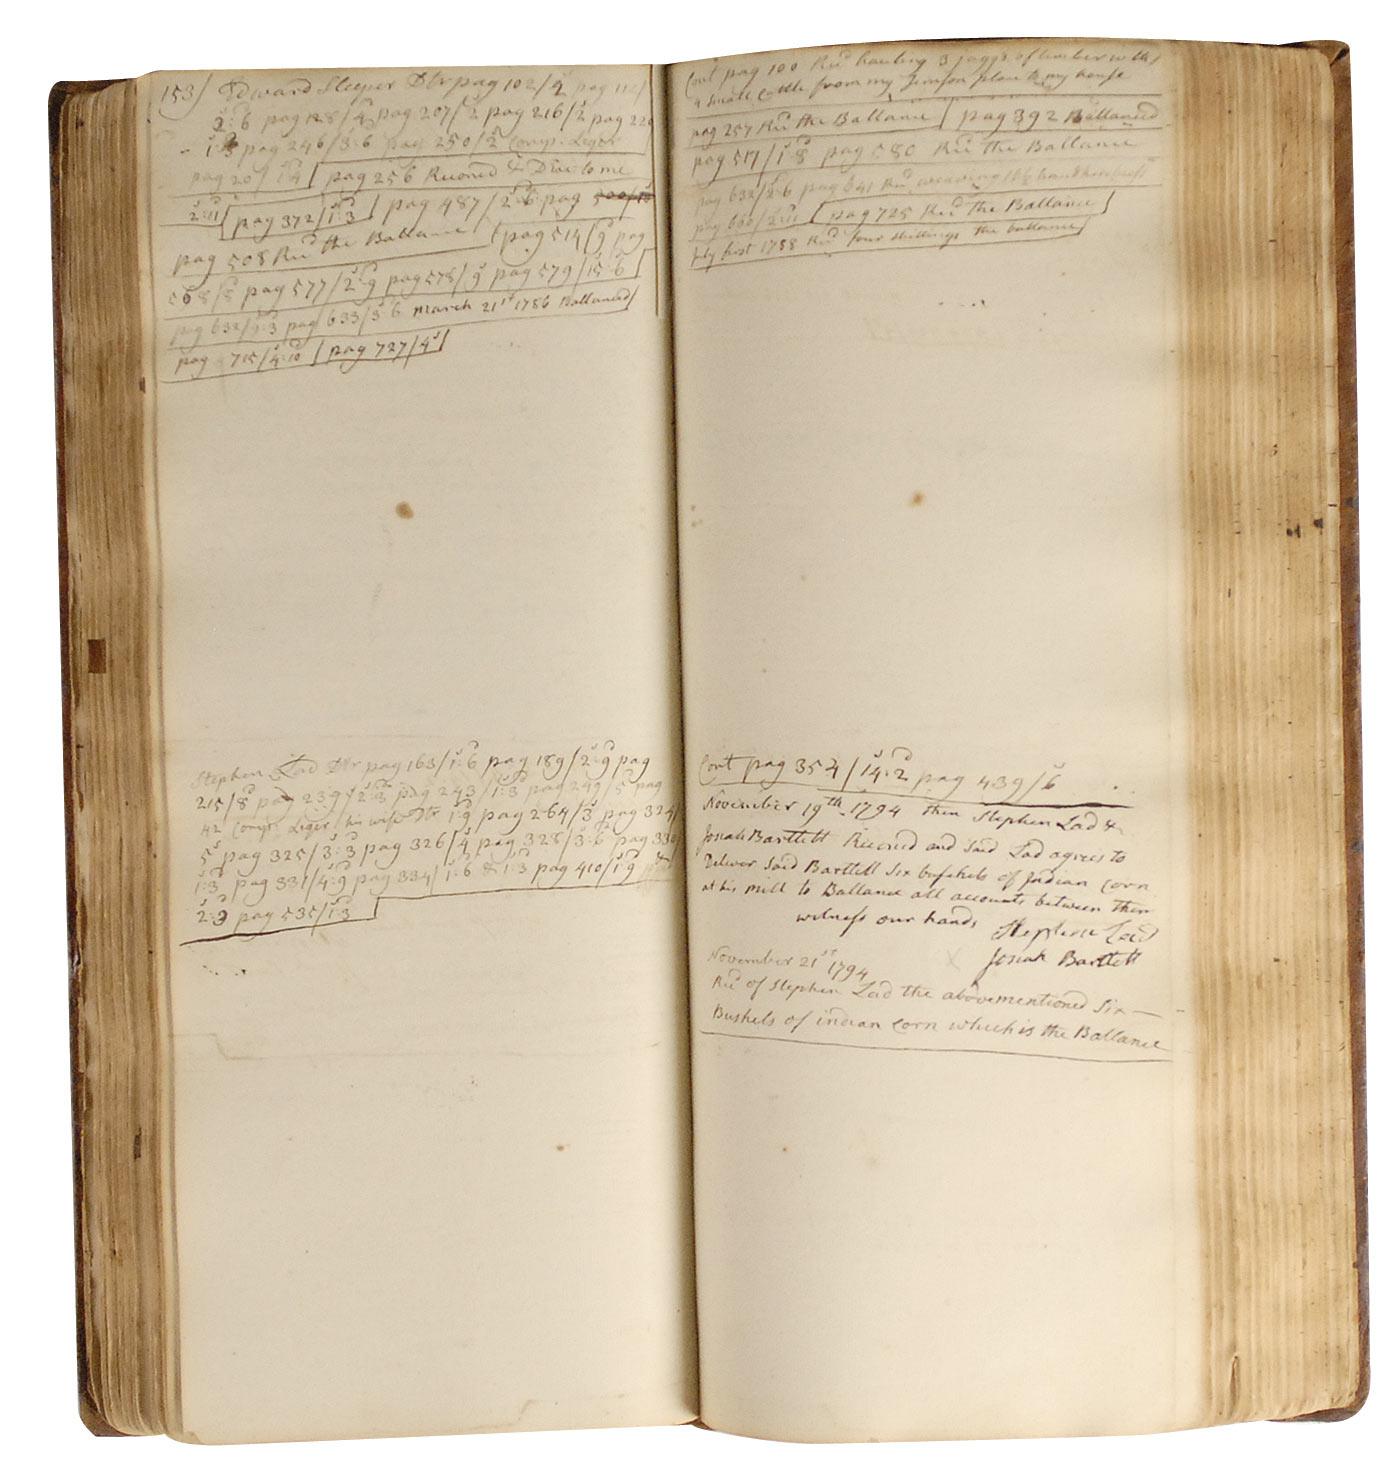 153/ Edward Sleeper Dtr pag 102/4 pag 112/
2:6 pag 128/4 pag 207/2 pag 216/2 pag 220
1:3 pag 246/3:6 pag 250/2 Comp. Leger
pag 20/1:4 pag 256 Reconed & Due to me
2:11 pag 372/1:3 pag 487/2:6 pag 500/10
pag 508 Recd the Ballance pag 514/9 pag
568/8 pag 577/2:9 pag 578/9 pag 579/15:6
pag 632/1:3 pag 633/3:6 march 21st 1786 Ballanced
pag 715/4:10 pag 727/4s
Stephen Lad Dtr pag 163/1:6 pag 189/2:9 pag
215/8 pag 239/2:3 pag 243/1:3 pag 249/5 pag
42 Comp. Leger his wife Dtr 1:9 pag 264/3 pag 324/
5s pag 325/3:3 pag 326/4 pag 328/3:6 pag 330
1:3 pag 331/4:9 pag 334/1:6 & 1:3 pag 410/1:9
2:9 pag 535/1:3
Cont pag 100 Recd hauling 3 jaggs of timber with
4 small cattle from my place to my house
pag 257 Recd the Ballance pag 392 Ballanced
pag 517/1:8 pag 580 Recd the Ballance
pag 632/2:6 pag 641 Recd weaving
pag 660/2:11 pag 725 Recd the Ballance
July first 1788 Recd four shillings the ballance
Cont pag 354/14:2 pag 439/6
November 19th 1794 then Stephen Lad &
Josiah Bartlett Reconed and said Lad agrees to
Deliver Said Bartlett Six bushels of Indian corn
at his mill to Ballance all accounts between them
witness our hands Stephen Lad
Josiah Bartlett
November 21st 1794
Recd of Stephen Lad the abovementioned Six
Bushels of indian corn which is the Ballance